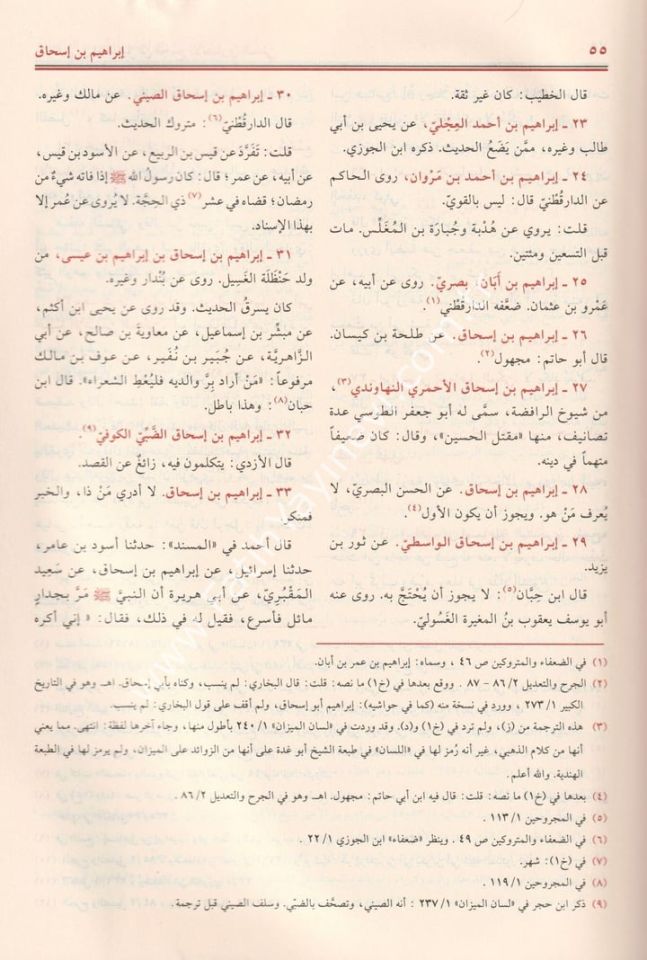 ٥٥
إبراهيم بن إسحاق
قال الخطيب: كان غير ثقة.
٢٣ ـ إبراهيم بن أحمد العِجْليّ، عن يحيى بن أبي
طالب وغيره، ممَّن يَضَعُ الحديث. ذكره ابن الجوزي.
٢٤ ـ إبراهيم بن أحمد بن مَرْوان، روى الحاكم
عن الدارقُطْنيّ قال: ليس بالقويّ.
قلت: يروي عن هُدْبة وجُبارة بن المُغَلِّس. مات
قبل التسعين ومئتين.
٢٥ ـ إبراهيم بن أَبَان، بصريّ. روى عن أبيه، عن
عَمْرو بن عثمان. ضعَّفه الدارقُطْني(١).
٢٦ ـ إبراهيم بن إسحاق. عن طلحة بن كيسان.
قال أبو حاتم: مجهول(٢).
٢٧ ـ إبراهيم بن إسحاق الأحمري النهاوندي(٣)،
من شيوخ الرافضة، سمَّى له أبو جعفر الطوسي عدة
تصانيف، منها «مقتل الحسين»، وقال: كان ضعيفاً
متهماً في دينه.
٢٨ ـ إبراهيم بن إسحاق. عن الحسن البصريّ، لا
يُعرف مَنْ هو. ويجوز أن يكون الأول(٤).
٢٩ ـ إبراهيم بن إسحاق الواسطيّ. عن ثور بن
يزيد.
قال ابن حِبَّان(٥): لا يجوز أن يُحْتَجَّ به. روى عنه
أبو يوسف يعقوب بنُ المغيرة الغَسُوليّ.
٣٠ ـ إبراهيم بن إسحاق الصيني. عن مالك وغيره.
قال الدارقُطْنيّ(٦): متروك الحديث.
قلت: تَفَرَّدَ عن قيس بن الربيع، عن الأسود بن قيس،
عن أبيه، عن عمر؛ قال: كان رسولُ الله ﷺ إذا فاته شيءٌ من
رمضان؛ قضاه في عشر(٧) ذي الحِجَّة. لا يُروى عن عُمر إلا
بهذا الإسناد.
٣١ ـ إبراهيم بن إسحاق بن إبراهيم بن عيسى، من
ولد حَنْظَلَة الغَسِيل. روى عن بُنْدار وغيره.
كان يسرقُ الحديث. وقد روى عن يحيى ابن أكثم،
عن مبشِّر بن إسماعيل، عن معاوية بن صالح، عن أبي
الزَّاهريَّة، عن جُبَير بن نُفَير، عن عوف بن مالك
مرفوعاً: «مَنْ أراد بِرَّ والديه فليُعْطِ الشعراء». قال ابن
حبان(٨): وهذا باطل.
٣٢ ـ إبراهيم بن إسحاق الضَّبِّيّ الكوفيّ(٩).
قال الأزدي: يتكلمون فيه، زائغٌ عن القصد.
٣٣ ـ إبراهيم بن إسحاق. لا أدري مَنْ ذا، والخبر
فمنكر.
قال أحمد في «المسند»: حدثنا أسود بن عامر،
حدثنا إسرائيل، عن إبراهيم بن إسحاق، عن سَعِيد
المَقْبُرِيّ، عن أبي هريرة أن النبيَّ ﷺ مَرَّ بجدارٍ
مائل فأسرع، فقيل له في ذلك، فقال: «إني أكره
(١) في الضعفاء والمتروكين ص ٤٦ ، وسماه: إبراهيم بن عمر بن أبان.
(٢) الجرح والتعديل ٨٦/٢ - ٨٧ . ووقع بعدها في (خ١) ما نصه: قلت: قال البخاري: لم ينسب، وكناه بأبي إسحاق. اهـ وهو في التاريخ
الكبير ٢٧٣/١ ، وورد في نسخة منه (كما في حواشيه): إبراهيم أبو إسحاق، ولم أقف على قول البخاري: لم ينسب.
(٣) هذه الترجمة من (ز)، ولم ترد في (خ١) و(د). وقد وردت في «لسان الميزان» ٢٤٠/١ بأطول منها، وجاء آخرها لفظة: انتهى. مما يعني
أنها من كلام الذهبي، غير أنه رُمز لها في «اللسان» في طبعة الشيخ أبو غدة على أنها من الزوائد على الميزان، ولم يرمز لها في الطبعة
الهندية. والله أعلم.
(٤) بعدها في (خ١) ما نصّه: قلت: قال فيه ابن أبي حاتم: مجهول. اهـ وهو في الجرح والتعديل ٨٦/٢ .
(٥) في المجروحين ١١٣/١ .
(٦) في الضعفاء والمتروكين ص ٤٩ . وينظر «ضعفاء» ابن الجوزي ٢٢/١ .
(٧) في (خ١): شهر.
(٨) في المجروحين ١١٩/١ .
(٩) ذكر ابن حجر في «لسان الميزان» ٢٣٧/١ : أنه الصيني، وتصحَّف بالضبّي. وسلف الصيني قبل ترجمة.